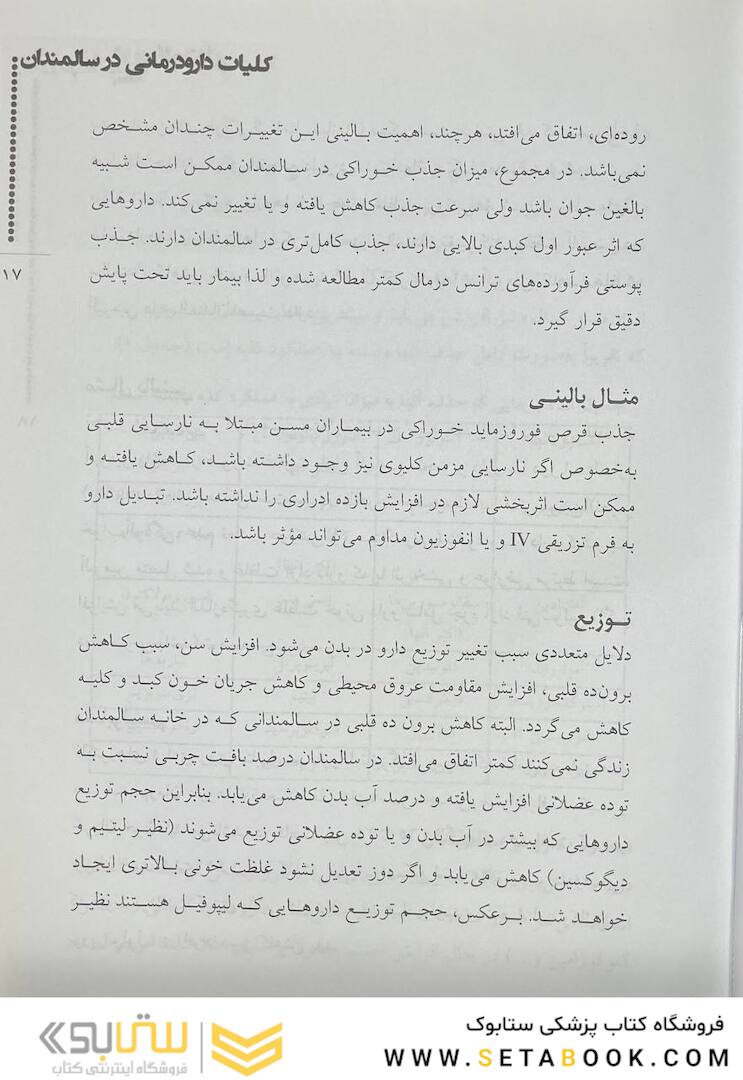 کلیات دارودرمانی در سالمندان
۱۷
روده‌ای، اتفاق می‌افتد، هرچند، اهمیت بالینی این تغییرات چندان مشخص
نمی‌باشد. در مجموع، میزان جذب خوراکی در سالمندان ممکن است شبیه
بالغین جوان باشد ولی سرعت جذب کاهش یافته و یا تغییر نمی‌کند. داروهایی
که اثر عبور اول کبدی بالایی دارند، جذب کامل‌تری در سالمندان دارند. جذب
پوستی فرآورده‌های ترانس درمال کمتر مطالعه شده و لذا بیمار باید تحت پایش
دقیق قرار گیرد.
مثال بالینی
جذب قرص فوروزماید خوراکی در بیماران مسن مبتلا به نارسایی قلبی
به‌خصوص اگر نارسایی مزمن کلیوی نیز وجود داشته باشد، کاهش یافته و
ممکن است اثربخشی لازم در افزایش بازده ادراری را نداشته باشد. تبدیل دارو
به فرم تزریقی IV و یا انفوزیون مداوم می‌تواند مؤثر باشد.
توزیع
دلایل متعددی سبب تغییر توزیع دارو در بدن می‌شود. افزایش سن، سبب کاهش
برون‌ده قلبی، افزایش مقاومت عروق محیطی و کاهش جریان خون کبد و کلیه
کاهش می‌گردد. البته کاهش برون ده قلبی در سالمندانی که در خانه سالمندان
زندگی نمی‌کنند کمتر اتفاق می‌افتد. در سالمندان درصد بافت چربی نسبت به
توده عضلانی افزایش یافته و درصد آب بدن کاهش می‌یابد. بنابراین حجم توزیع
داروهایی که بیشتر در آب بدن و یا توده عضلانی توزیع می‌شوند (نظیر لیتیم و
دیگوکسین) کاهش می‌یابد و اگر دوز تعدیل نشود غلظت خونی بالاتری ایجاد
خواهد شد. برعکس، حجم توزیع داروهایی که لیپوفیل هستند نظیر
فروشگاه کتاب پزشکی ستابوک
WWW.SETABOOK.COM
ستابوک
فروشگاه اینترنتی کتاب